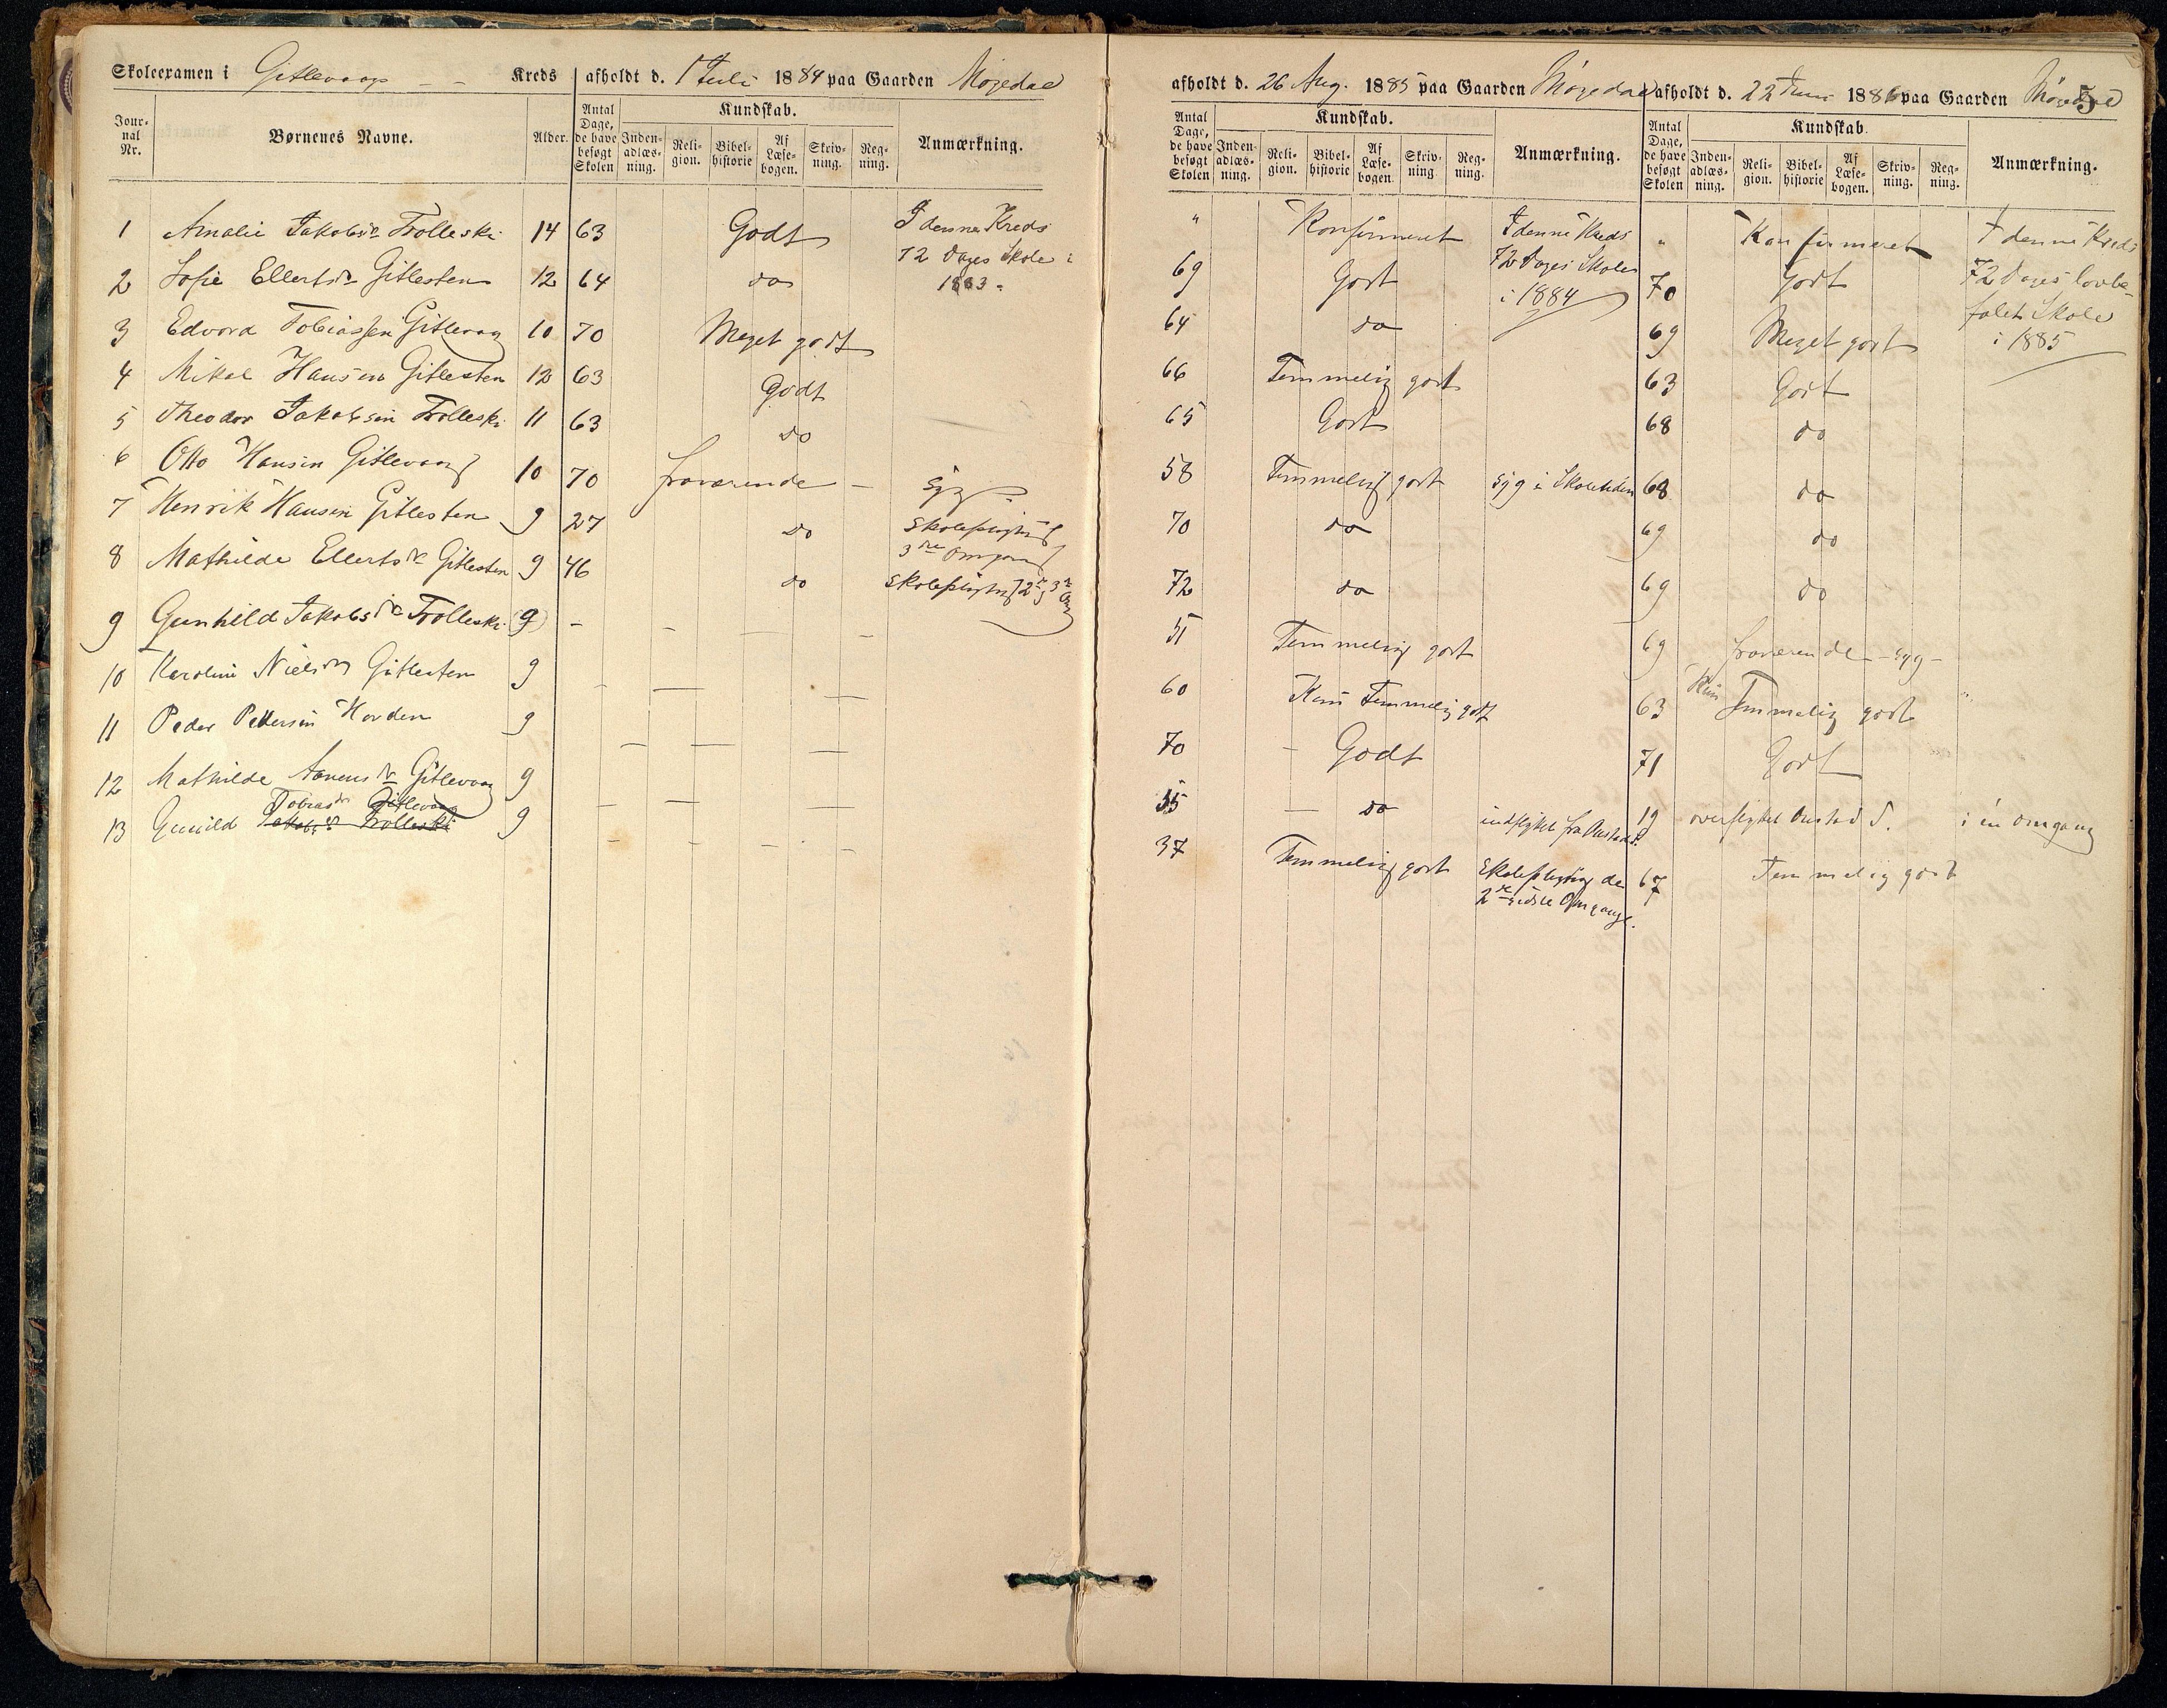 Skoleexamen i Gitlevaag Kreds afholdt d. 1 Juli 1884 paa Gaarden Møgedal
Jour-nal Nr. Børnenes Navne. Alder. Antal Dage, de have besøgt Skolen Kundskab. Inden-adlæs-ning. Reli-gion. Bibel-historie Af Læse-bogen. Skriv-ning. Reg-ning. Anmærkning.
1 Amalie Jakobsdr Trolleski 14 63 Godt I denne Kreds
72 Dages Skole i
2 Sofie Ellertsdr Gitlesten 12 64 do 1883.
3 Edvard Tobiassen Gitlevaag 10 70 Meget godt
4 Mikal Hansen Gitlesten 12 63 Godt
5 Theodor Jakobsen Trolleski 11 63 do
6 Otto Hansen Gitlevaag 10 70 fraværende – Syg
7 Henrik Hansen Gitlesten 9 27 do Skolepligtig
3die Omgang
8 Mathilde Ellertsdr Gitlesten 9 46 do Skolepligtig 2n 3n Omg
9 Gunhild Jakobsdr Trolleski (9) – – – –
10 Karoline Nielsdr Gitlesten 9 – — —
11 Peder Pedersen Horden 9 — — —
12 Mathilde Aanensdr Gitlevaag 9 – — —
Tobiasdr Gitlevaag
13 Gunild Jakobsdr Trolleski 9 – – – –
afholdt d. 26 Aug. 1885 paa Gaarden Møgedal
Antal Dage, de have besøgt Skolen Kundskab. Inden-adlæs-ning. Reli-gion. Bibel-historie Af Læse-bogen. Skriv-ning. Reg-ning. Anmærkning.
" Konfirmeret I denne Kreds
72 Dages Skole
69 Godt i 1884
64 do
66 Temmelig godt
65 Godt
58 Temmelig godt Syg i Skoletiden
70 do
72 do
51 Temmelig godt
60 Kun Temmelig godt
70 – Godt
55 — do indflyttet fra Austad S.
37 Temmelig godt Skolepligtig de
2de sidste Omgange.
afholdt d. 22 Juni 1886 paa Gaarden Møgedal
5
Antal Dage, de have besøgt Skolen Kundskab. Inden-adlæs-ning. Reli-gion. Bibel-historie Af Læse-bogen. Skriv-ning. Reg-ning. Anmærkning.
" Konfirmeret I denne Kreds
70 Godt 72 Dages lovbe-
falet Skole
69 Meget godt i 1885
63 Godt
68 do
68 do
69 do
69 do
69 fraværende – syg –
63 Kun Temmelig godt "
71 Godt
19 overflyttet Austad S. i en Omgang
67 Temmelig godt